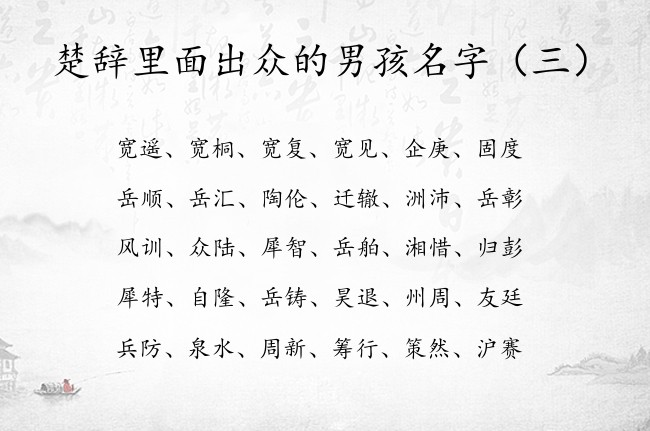 楚辞里面出众的男孩名字（三）
宽遥、宽桐、宽复、宽见、企庚、固度
岳顺、岳汇、陶伦、迁辙、洲沛、岳彰
风训、众陆、犀智、岳舶、湘惜、归彭
犀特、自隆、岳铸、昊退、州周、友廷
兵防、泉水、周新、筹行、策然、沪赛